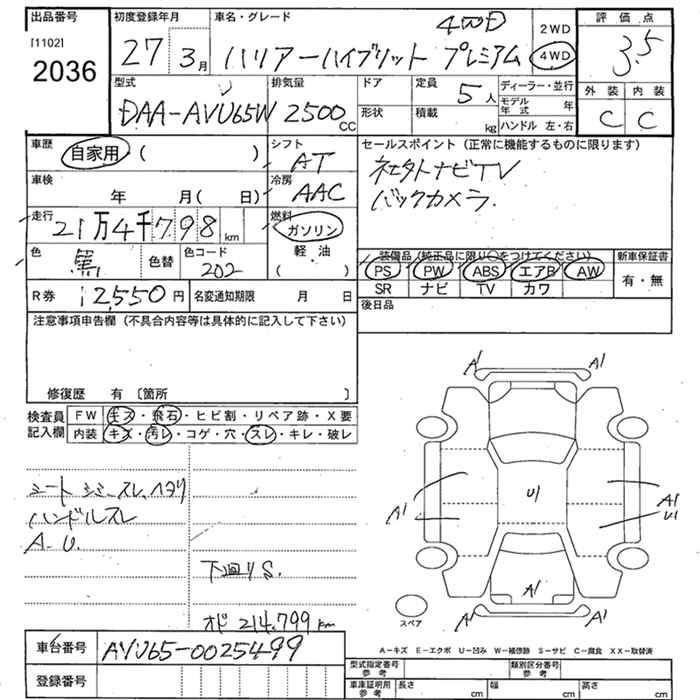 出品番号
[1102]
2036
初度登録年月
27 3月
車名・グレード
4WD
ハリアーハイブリット プレミアム
2WD
4WD
評価点
3.5
外装 内装
C C
型式
DAA-AVU65W
排気量
2500cc
ドア
形状
定員
5人
積載 kg
ディーラー・並行
モデル年式 年
ハンドル 左・右
車歴
自家用・( )
シフト
AT
車検
年 月( 日)
冷房
AAC
走行
21万4千798km
燃料
ガソリン
軽油
( )
色
黒
色替
色コード
202
セールスポイント(正常に機能するものに限ります)
社外ナビTV
バックカメラ.
装備品(純正品に限り○をつけてください)
新車保証書
PS PW ABS エアB AW
SR ナビ TV カワ
有・無
後日品
R券 12,550円
名変通知期限 月 日
注意事項申告欄(不具合内容等は具体的に記入して下さい)
修復歴 有 [箇所 ]
検査員記入欄
FW キズ・飛石・ヒビ割・リペア跡・X要
内装 キズ・汚レ・コゲ・穴・スレ・キレ・破レ
シート シミ、スレ、ヘタリ
ハンドルスレ
A.U.
下廻りS.
オド 214.799km
A1 A1
A1 U1 A1
U1
A1
A1 A1
スペア
A-キズ E-エクボ U-凹み W-補修跡 S-サビ C-腐食 XX-取替済
車台番号 AVU65-0025499
登録番号
型式指定番号 参考
類別区分番号 参考
車庫証明用 参考
長さ cm 幅 cm 高さ cm